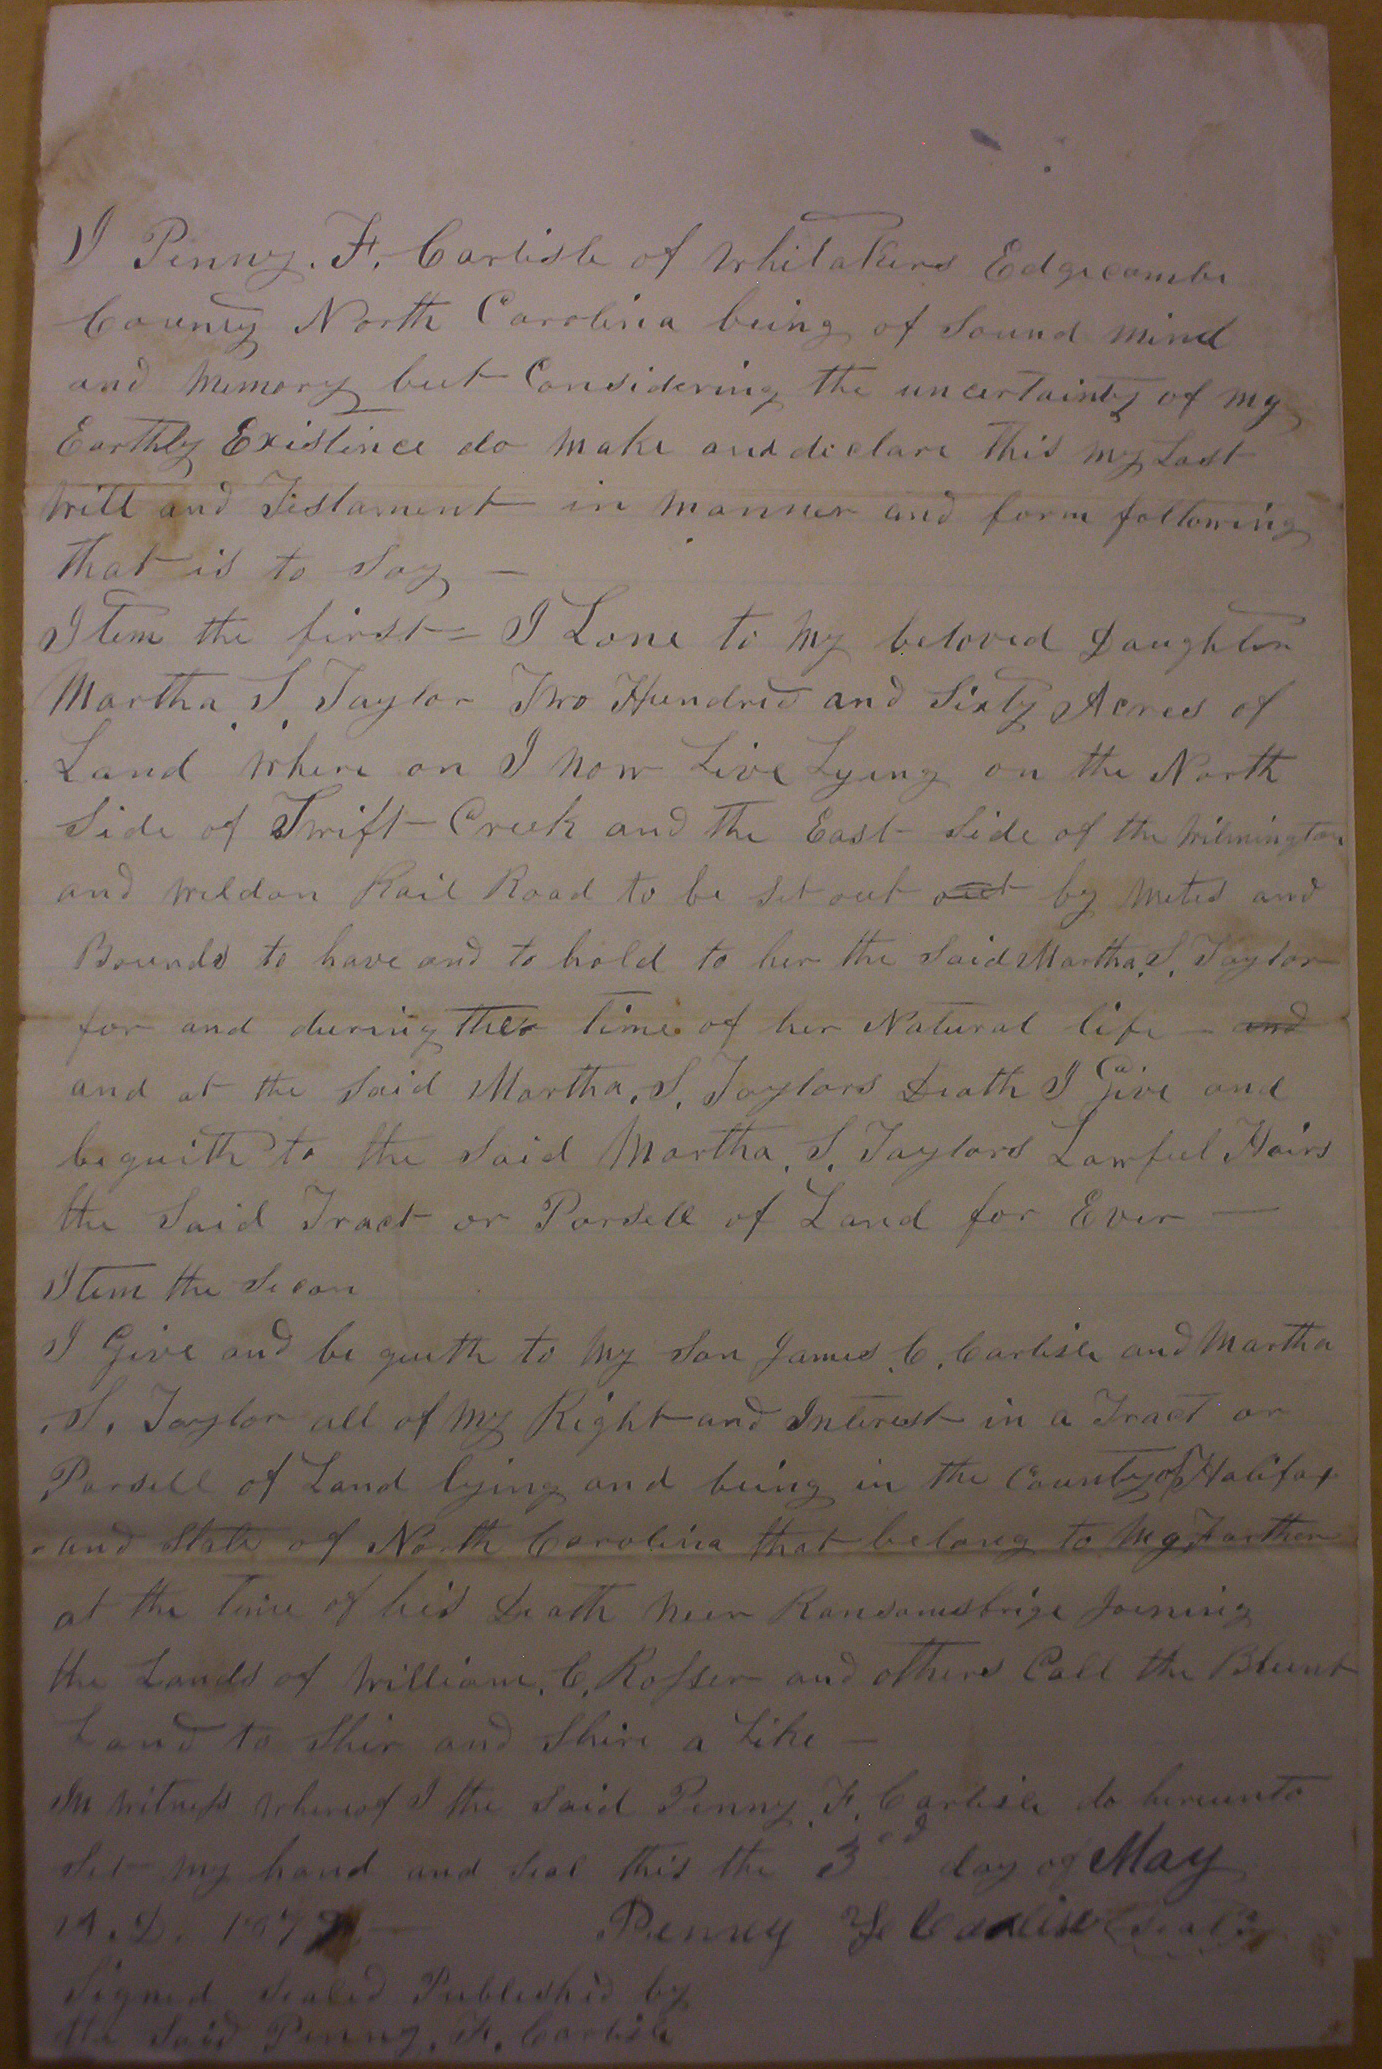 I Penny. F. Carlisle of Whitakers Edgecombe
County North Carolina being of Sound Mind
and Memory but Considering the uncertainty of My
Earthly Existince do Make and declare this My Last
Will and Testament in Manner and form following
that is to Say —
Item the first = I Lone to My beloved Daughter
Martha. S. Taylor Two Hundred and Sixty Acres of
Land Where on I Now Live Lying on the North
Side of Swift Creek and the East Side of the Wilmington
and Weldon Rail Road to be Set out out by Metes and
Bounds to have and to hold to her the Said Martha. S. Taylor
for and during the time of her Natural life — and
and at the Said Martha. S. Taylors Death I Give and
bequith to the Said Martha. S. Taylors Lawful Hairs
the Said Tract or Parsell of Land for Ever —
Item the Secon
I Give and be queth to My Son James. C. Carlisle and Martha
. S. Taylor all of My Right and Interest in a Tract or
Parsell of Land lying and being in the County of Halifax
and State of North Carolina that belong to My Farther
at the Time of his Death Neer Ransomsbrige Joening
the Lands of William. C. Rosser and others Call the Blunt
Land to Shir and Shire a Like —
In Witness Whereof I the Said Penny. F. Carlisle do hereunto
Set My hand and Seal this the 3rd day of May
A. D. 187 —
Penny F Carlisle Seal
Signed Sealed Published by
the Said Penny. F. Carlisle